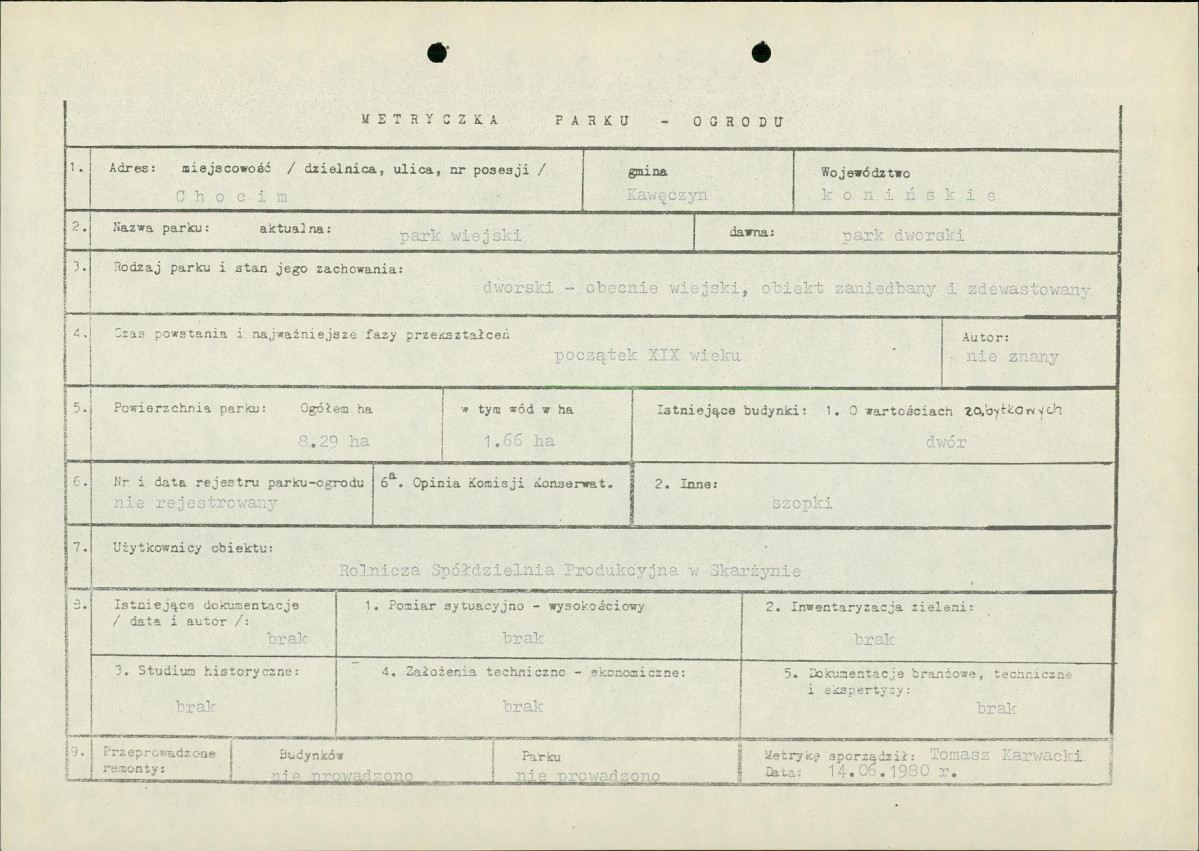 METRYCZKA PARKU - OGRODU
1. Adres: miejscowość / dzielnica, ulica, nr posesji / gmina Województwo
Chocim Kawęczyn konińskie
2. Nazwa parku: aktualna: park wiejski dawna: park dworski
3. Rodzaj parku i stan jego zachowania:
dworski - obecnie wiejski, obiekt zaniedbany i zdewastowany
4. Czas powstania i najważniejsze fazy przekształceń Autor:
początek XIX wieku nie znany
5. Powierzchnia parku: Ogółem ha w tym wód w ha Istniejące budynki: 1. O wartościach zabytkowych
8.29 ha 1.66 ha dwór
6. Nr i data rejestru parku-ogrodu 6a. Opinia Komisji Konserwat. 2. Inne:
nie rejestrowany szopki
7. Użytkownicy obiektu:
Rolnicza Spółdzielnia Produkcyjna w Skarżynie
8. Istniejące dokumentacje 1. Pomiar sytuacyjno - wysokościowy 2. Inwentaryzacja zieleni:
/ data i autor /:
brak brak brak
3. Studium historyczne: 4. Założenia techniczno - ekonomiczne: 5. Dokumentacje branżowe, techniczne
i ekspertyzy:
brak brak brak
9. Przeprowadzone Budynków Parku Metrykę sporządził: Tomasz Karwacki
remonty: nie prowadzono nie prowadzono Data: 14.06.1980 r.